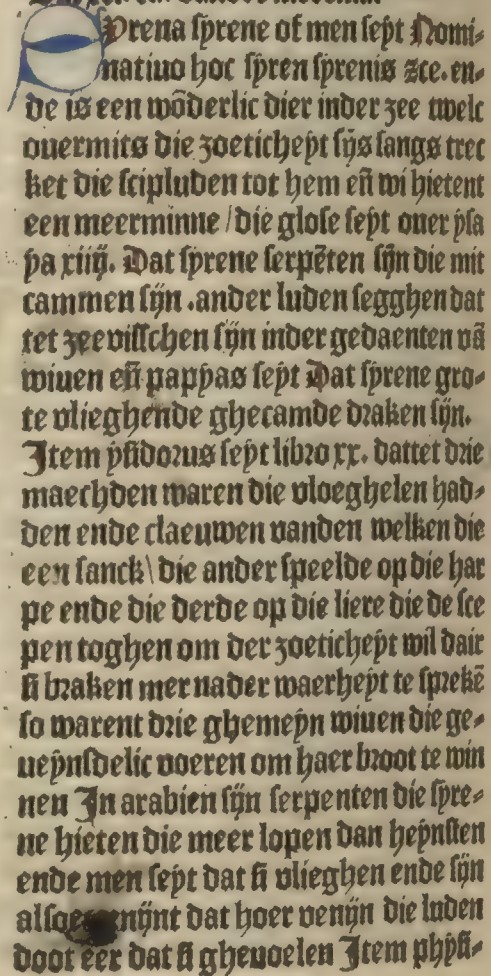 Syrena syrene of men seyt Nomi⸗
natiuo hoc syren syrenis ꝛce. en⸗
de is een wōderlic dier inder zee welc
ouermits die zoeticheyt sijs sangs trec
ket die scipluden tot hem eñ wi hietent
een meerminne / die glose seyt ouer ysa
ya xiiij. Dat syrene serpēten sijn die mit
cammen sijn . ander luden segghen dat
tet zee visschen sijn inder gedaenten vā
wiuen eñ pappas seyt Dat syrene gro⸗
te vlieghende ghecamde draken sijn.
Item ysidorus seyt libro xx. dattet drie
maechden waren die vloeghelen had⸗
den ende claeuwen vanden welken die
een sanck \ die ander speelde op die har
pe ende die derde op die liere die de sce
pen toghen om der zoeticheyt wil dair
si braken mer nader waerheyt te sprekē
so warent drie ghemeyn wiuen die ge⸗
ueynsdelic voeren om haer broot te win
nen In arabien sijn serpenten die syre⸗
ne hieten die meer lopen dan heynsten
ende men seyt dat si vlieghen ende sijn
dat hoer venijn die luden
doot eer dat si gheuoelen Item physi⸗